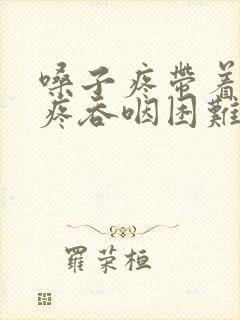 嗓子疼帶着
疼吞咽困難
羅荣桓